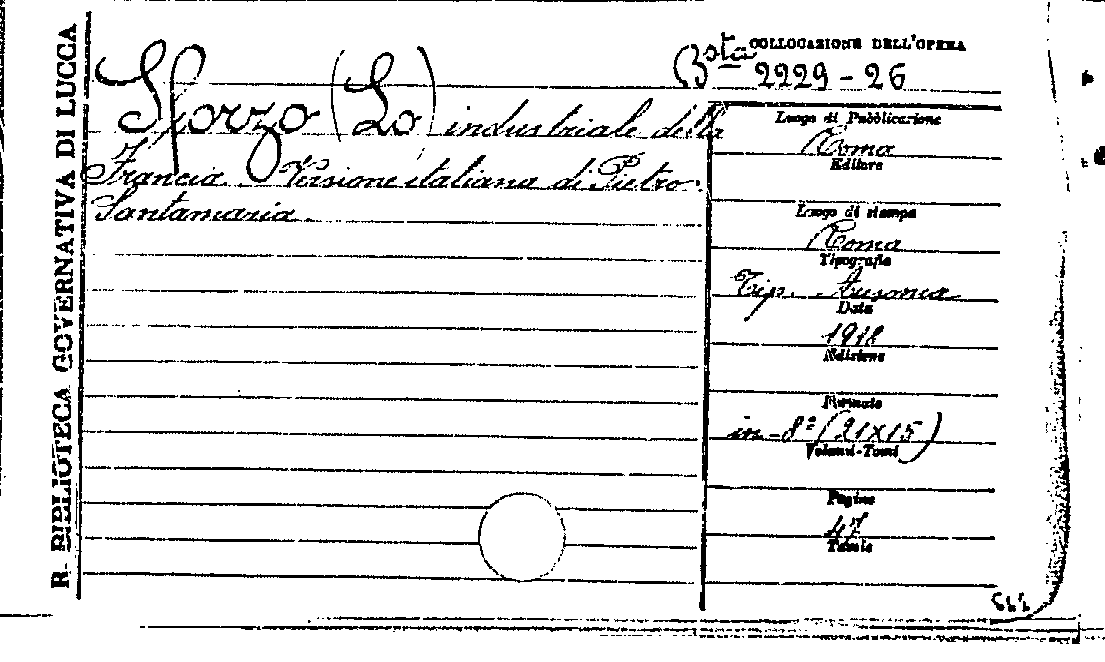 R. BIBLIOTECA GOVERNATIVA DI LUCCA
COLLOCAZIONE DELL'OPERA
Bsta 2229-26
Sforzo (Lo) industriale della
Francia. Versione italiana di Pietro
Santamaria.
Luogo di Pubblicazione
Roma
Editore
Luogo di stampa
Roma
Tipografia
Tip. Ausonia
Data
1918
Edizione
Formato
in-8º (21x15)
Volumi-Tomi
Pagine
47
Tavole